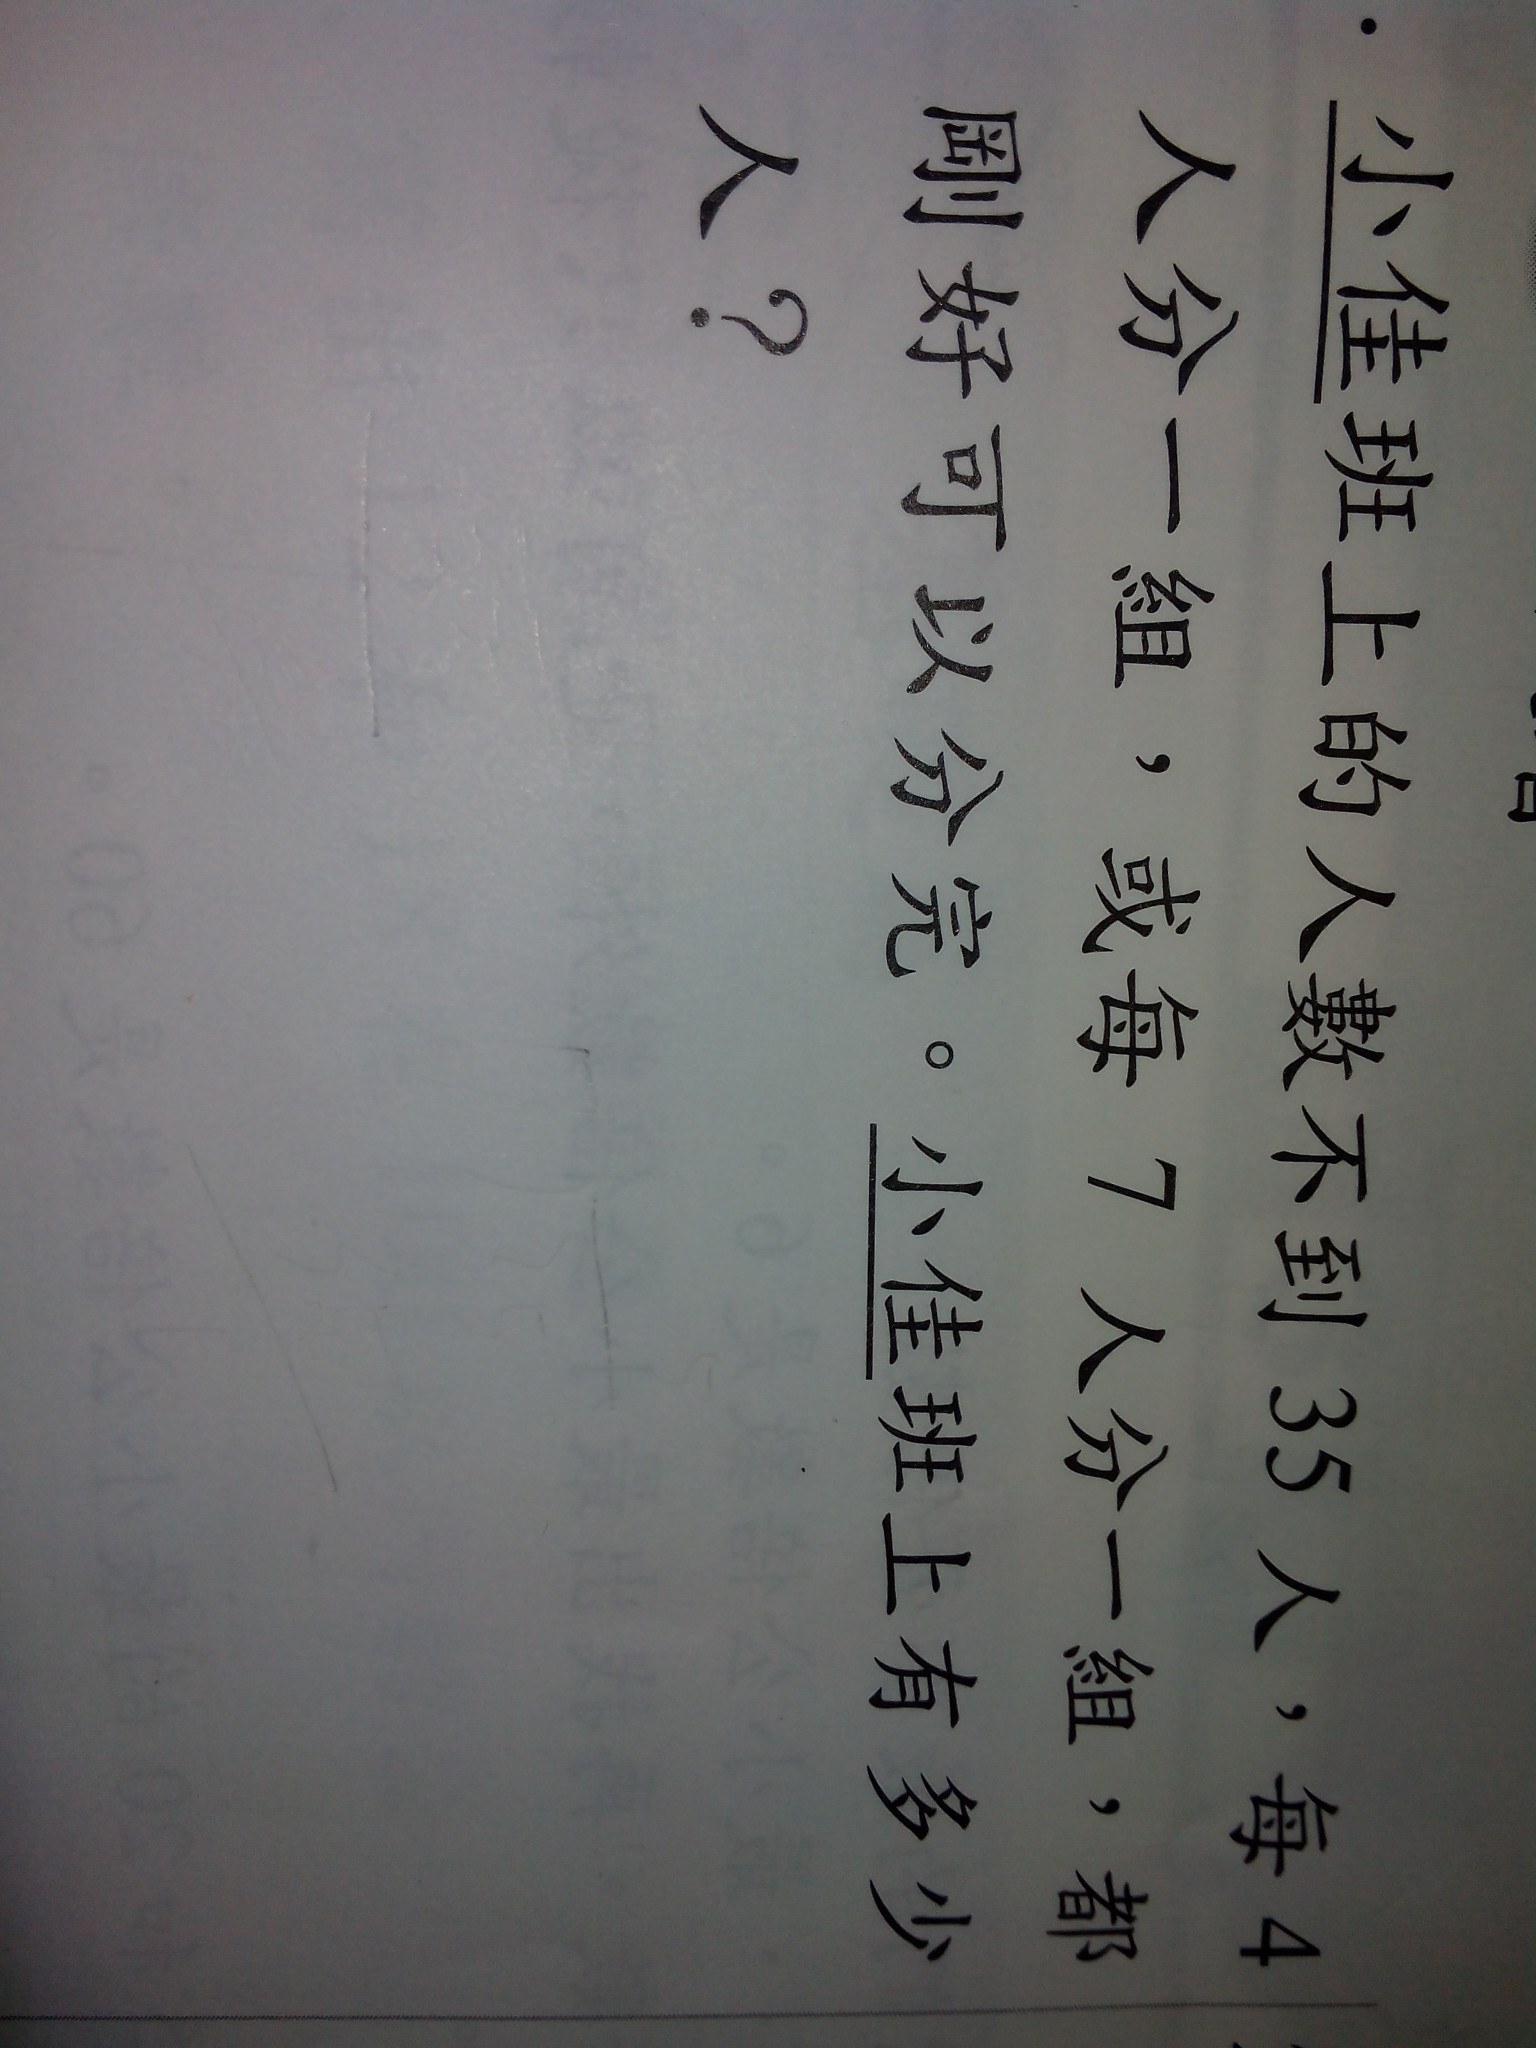 小佳班上的人數不到 35 人，每 4
人分一組，或每 7 人分一組，都
剛好可以分完。小佳班上有多少
人？